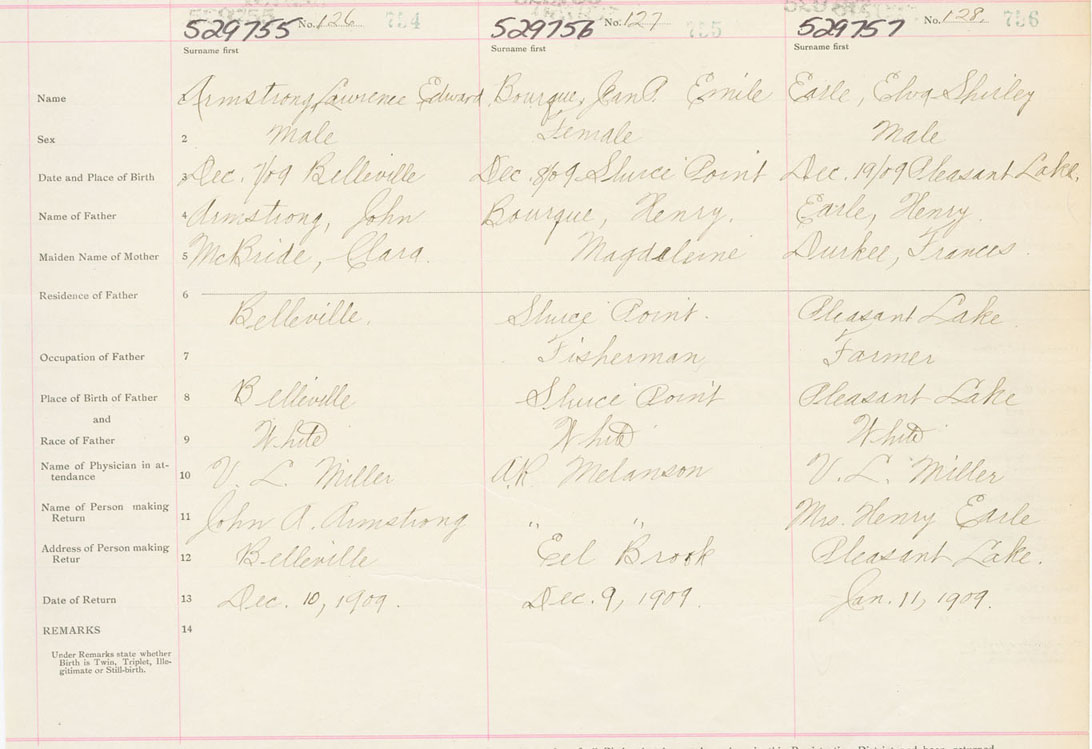 529755 No. 126 754 529756 No. 127 755 529757 No. 128. 756
Surname first Surname first Surname first
Name 1 Armstrong, Lawrence Edward Bourque, Jean A. Emile Earle, Elva Shirley
Sex 2 Male Female Male
Date and Place of Birth 3 Dec. 7/09 Belleville Dec. 8/09 Sluice Point Dec. 19/09 Pleasant Lake.
Name of Father 4 Armstrong, John Bourque, Henry. Earle, Henry.
Maiden Name of Mother 5 McBride, Clara. Magdaleine Durkee, Frances.
Residence of Father 6
Belleville. Sluice Point. Pleasant Lake.
Occupation of Father 7 Fisherman Farmer
Place of Birth of Father 8 Belleville Sluice Point Pleasant Lake
and
Race of Father 9 White White White
Name of Physician in at-
tendance 10 V. L. Miller A.R. Melanson V. L. Miller
Name of Person making
Return 11 John A. Armstrong " " Mrs. Henry Earle
Address of Person making
Retur 12 Belleville Eel Brook Pleasant Lake.
Date of Return 13 Dec. 10, 1909. Dec. 9, 1909. Jan. 11, 1909.
REMARKS 14
Under Remarks state whether
Birth is Twin, Triplet, Ille-
gitimate or Still-birth.